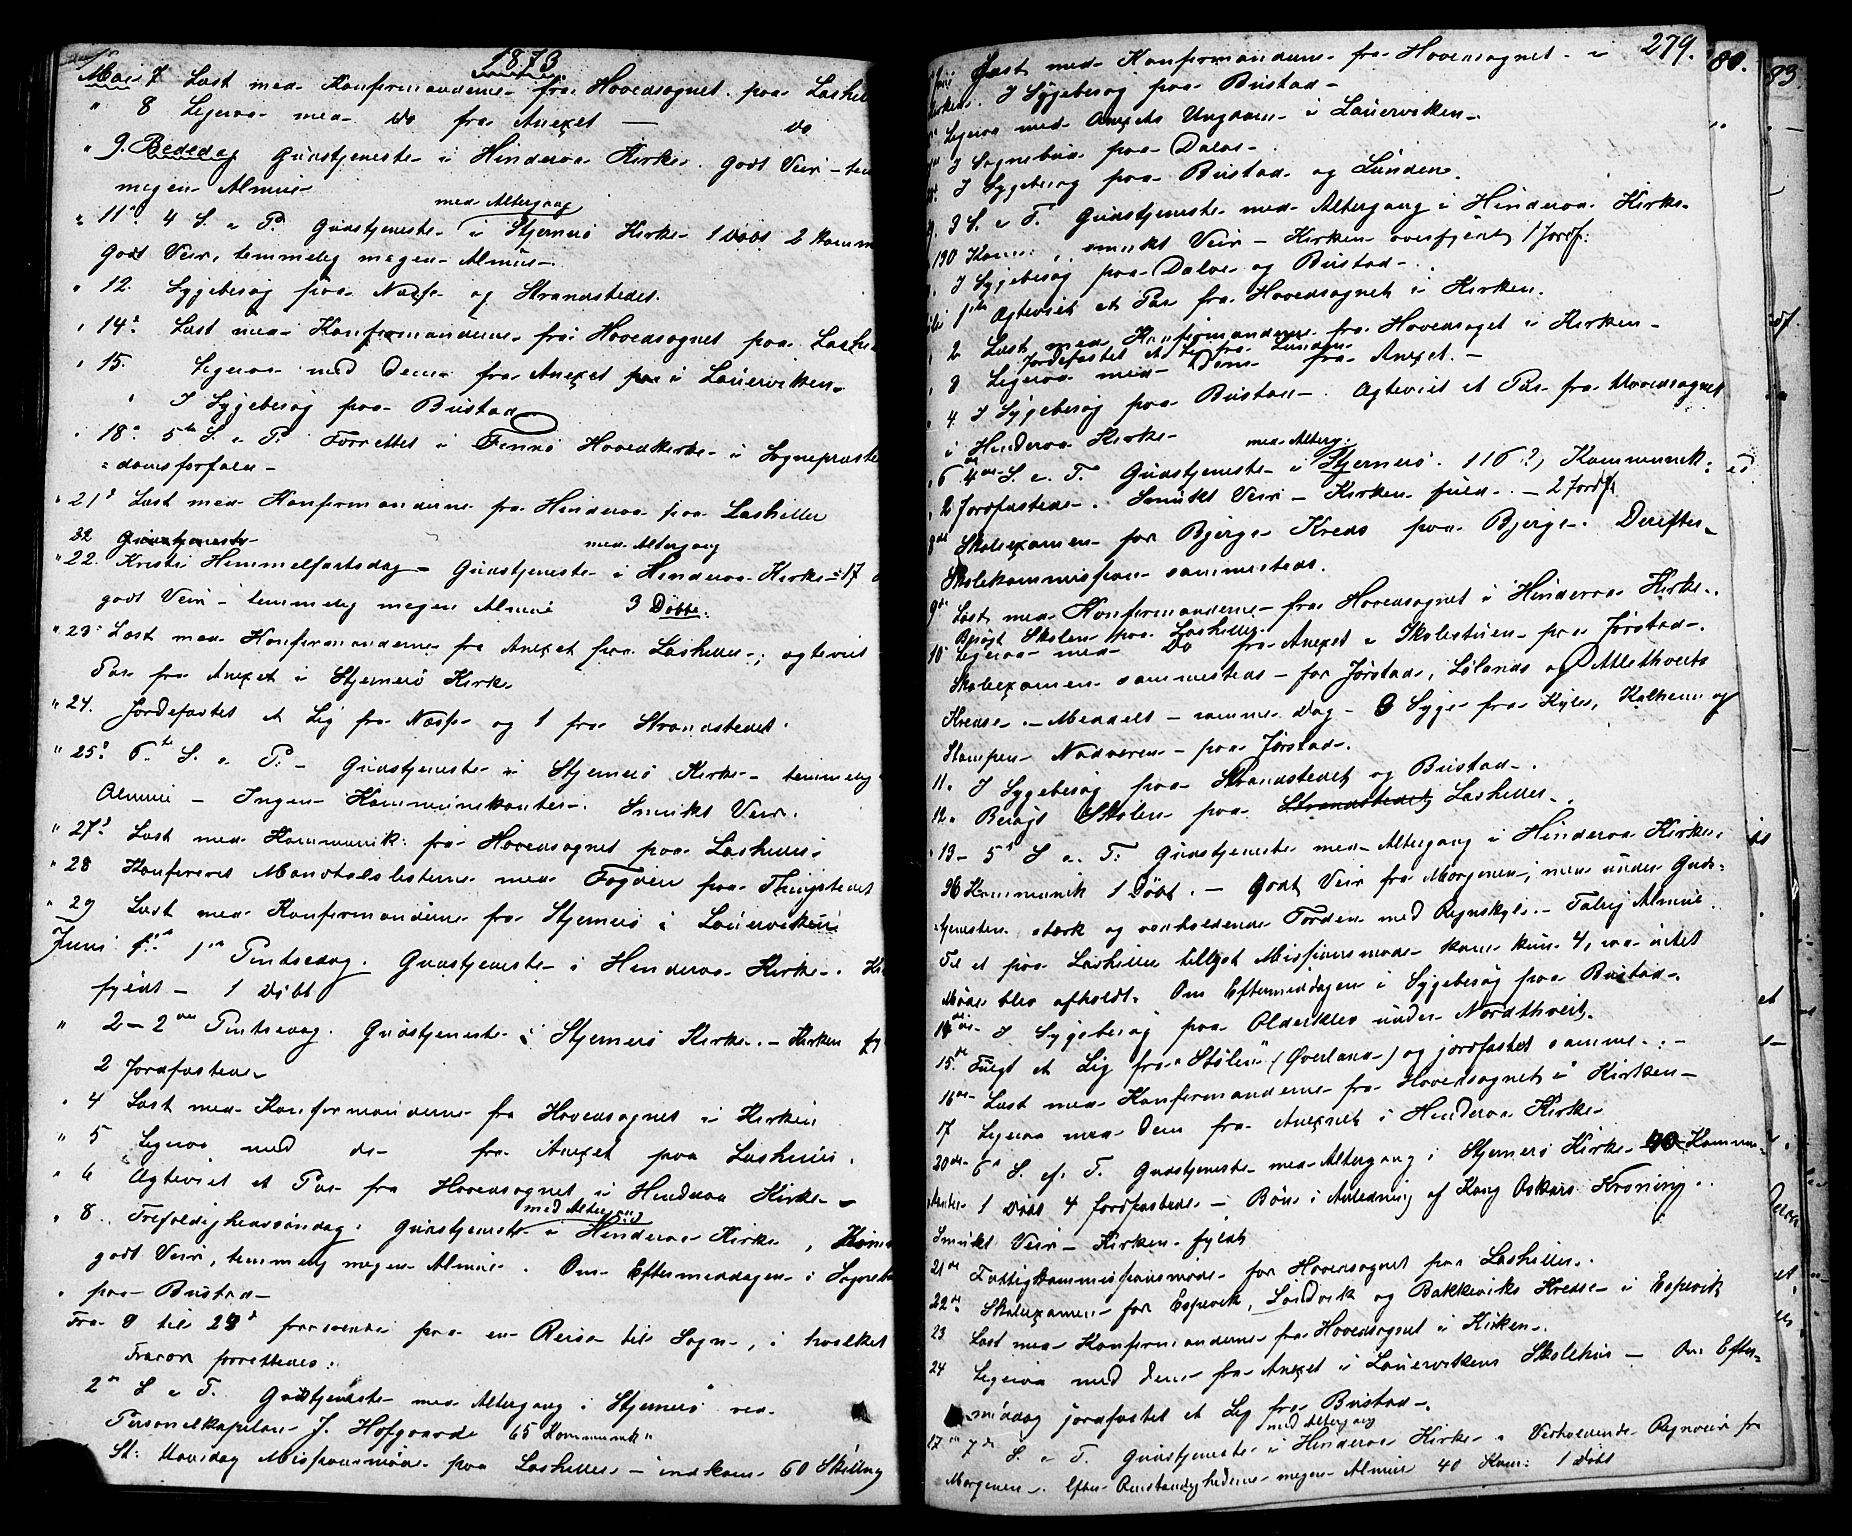 1873
Mai 7 Læst med Konfirmanderne fra Hovedsognet paa Lashell
" 8 Ligesaa med do fra Anexet — do
" 9. Bededag Gudstjeneste i Hinderaa Kirke. Godt Veir – tem
megen Almue
" 11te 4 S. e P. Gudstjeneste med Altergang i Stjernerö Kirke 1 Döbt 2 Komm
Godt Veir, temmelig megen Almue.
" 12. Sygebesøg paa Næss og Strandstedet.
" 14de Læst med Konfirmanderne fra Hovedsognet paa Lashe
" 15. Ligesaa med Dem fra Anexet i Lauerviken.
" I Sygebesøg paa Bustad
" 18de 5te S. e P. Forrettet i Finnö Hovedkirke i Sognepræste
=domsforfald –
" 21de Læst med Konfirmanderne fra Hinderaa paa Lashelle
22 Gudstjeneste
" 22. Kristi Himmelfartsdag – Gudstjeneste med Altergang i Hinderaa Kirke 17
godt Veir – temmelig megen Almue 3 Döbte.
" 23de Læst med Konfirmanderne fra Anexet paa Lashelle; agteviet
Par fra Anexet i Stjernerö Kirke
" 24. Jordfæstet et Lig fra Næss og 1 fra Strandstedet.
" 25de 6te S. e P. – Gudstjeneste i Stjernerö Kirke – temmelig
Almue – Ingen Kommunikanter. Smukt Veir.
" 27de Læst med Kommunik: fra Hovedsognet paa Lashelle
" 28 Konfereret Mandtalslisterne med Fogden paa Thingstedet
" 29 Læst med Konfirmanderne fra Stjernerö i Lauerviken
Juni 1ste 1ste Pintsedag. Gudstjeneste i Hinderaa Kirke. Ki
fyldt – 1 Döbt
" 2 – 2den Pintsedag. Gudstjeneste i Stjernerö Kirke. – Kirken fy
2 Jordfæstede
" 4 Læst med Konfirmanderne fra Hovedsognet i Kirken
" 5 Ligesaa med do fra Anexet paa Lashelle.
" 6 Agteviet et Par fra Hovedsognet i Hinderaa Kirke –
" 8. Trefoldighedssöndag. Gudstjeneste med Altergang i Hinderaa Kirke, Kom
godt Veir, temmelig megen Almue. Om Eftermiddagen i Sogneb
" paa Bustad
Fra 9 til 28de fraværende paa en Reise til Sogn, i hvilket
Fravær forrettedes:
2den S e T. Gudstjeneste med Altergang i Stjernerö ved
Personelkapellan J. Hofgaard 65 Kommunik"
St: Hansdag Missionsmöde paa Lashelle – indkom 60 Skilling
279.
80.
83.
Læst med Konfirmanderne fra Hovedsognet i
Kirken. I Sygebesøg paa Bustad –
Ligesaa med Anexets Ungdom i Lauerviken.
I Sognebud paa Dalve
I Sygebesøg paa Bustad og Lunden.
3 S. e T. Gudstjeneste med Altergang i Hinderaa Kirke
130 Kom:, smukt Veir – Kirken overfyldt 1 Jordf:
I Sygebesøg paa Dalve og Bustad.
1ste Agteviet et Par fra Hovedsognet i Kirken.
2 Læst med Konfirmanderne fra Hovedsognet i Kirken –
Jordfæstet et Lig fra Lunden
8 Ligesaa med Dem fra Anexet. –
4 I Sygebesøg paa Bustad – Agteviet et Par fra Hovedsognet
i Hinderaa Kirke
" 6 4de S. e. T. Gudstjeneste med Alterg: i Stjernerö. 116 Kommunik:
2 Jordfæstede. Smukt Veir – Kirken fuld. – 2 Jordf.
8de Skoleexamen for Bjerge Kreds paa Bjerge. Derefter
Skolekommission sammesteds.
9de Læst med Konfirmanderne fra Hovedsognet i Hinderaa Kirke.
Besøgt Skolen paa Lashelle.
10 Ligesaa med Do fra Anexet i Skolestuen paa Jörstad.
Skoleexamen sammesteds – for Jörstads, Lölands og Atlethveits
Kredse. – Meddelt – samme Dag – 3 Syge fra Kyles, Kalheim og
Stampen Nadveren – paa Jörstad.
11. I Sygebesøg paa Strandstedet og Bustad –
12. Besøgt Skolen paa Strandstedet Lashelle.
" 13 – 5te S e. T: Gudstjeneste med Altergang i Hinderaa Kirke.
36 Kommunik 1 Döbt. – Godt Veir fra Morgenen; men under Guds-
tjenesten stærk og vedholdende Torden med Regnskyl. – Talrig Almue.
Til et paa Lashelle tillyst Missionsmöde kom kun 4, saa intet
Möde blev afholdt. Om Eftermiddagen i Sygebesøg paa Bustad.
14de I Sygebesøg paa Olderklev under Nordthveit.
15de Fulgt et Lig fra "Stölen" (Överland) og jordfæstet samme. –
16de Læst med Konfirmanderne fra Hovedsognet i Kirken –
17 Ligesaa med Dem fra Anexet i Hinderaa Kirke
20de 6te S. ef. T. Gudstjeneste med Altergang i Stjernerö Kirke 40 Kommu-
nikanter 1 Döbt 4 Jordfæstede – Bön i Anledning af Kong Oskars Kroning.
Smukt Veir – Kirken fyldt
21de Fattigkommissionsmöde for Hovedsognet paa Lashelle.
22de Skoleexamen for Espevik, Sandvik og Bakkeviks Kredse i Espevik
23 Læst med Konfirmanderne fra Hovedsognet i Kirken.
24 Ligesaa med Dem fra Anexet i Lauervikens Skolehus – Om Efter=
middag jordfæstet et Lig fra Bustad.
27de 7de S. e T. Gudstjeneste med Altergang i Hinderaa Kirke. Vedholdende Regnveir fra
Morgenen. Efter Omstændighederne megen Almue 40 Kom: 1 Döbt